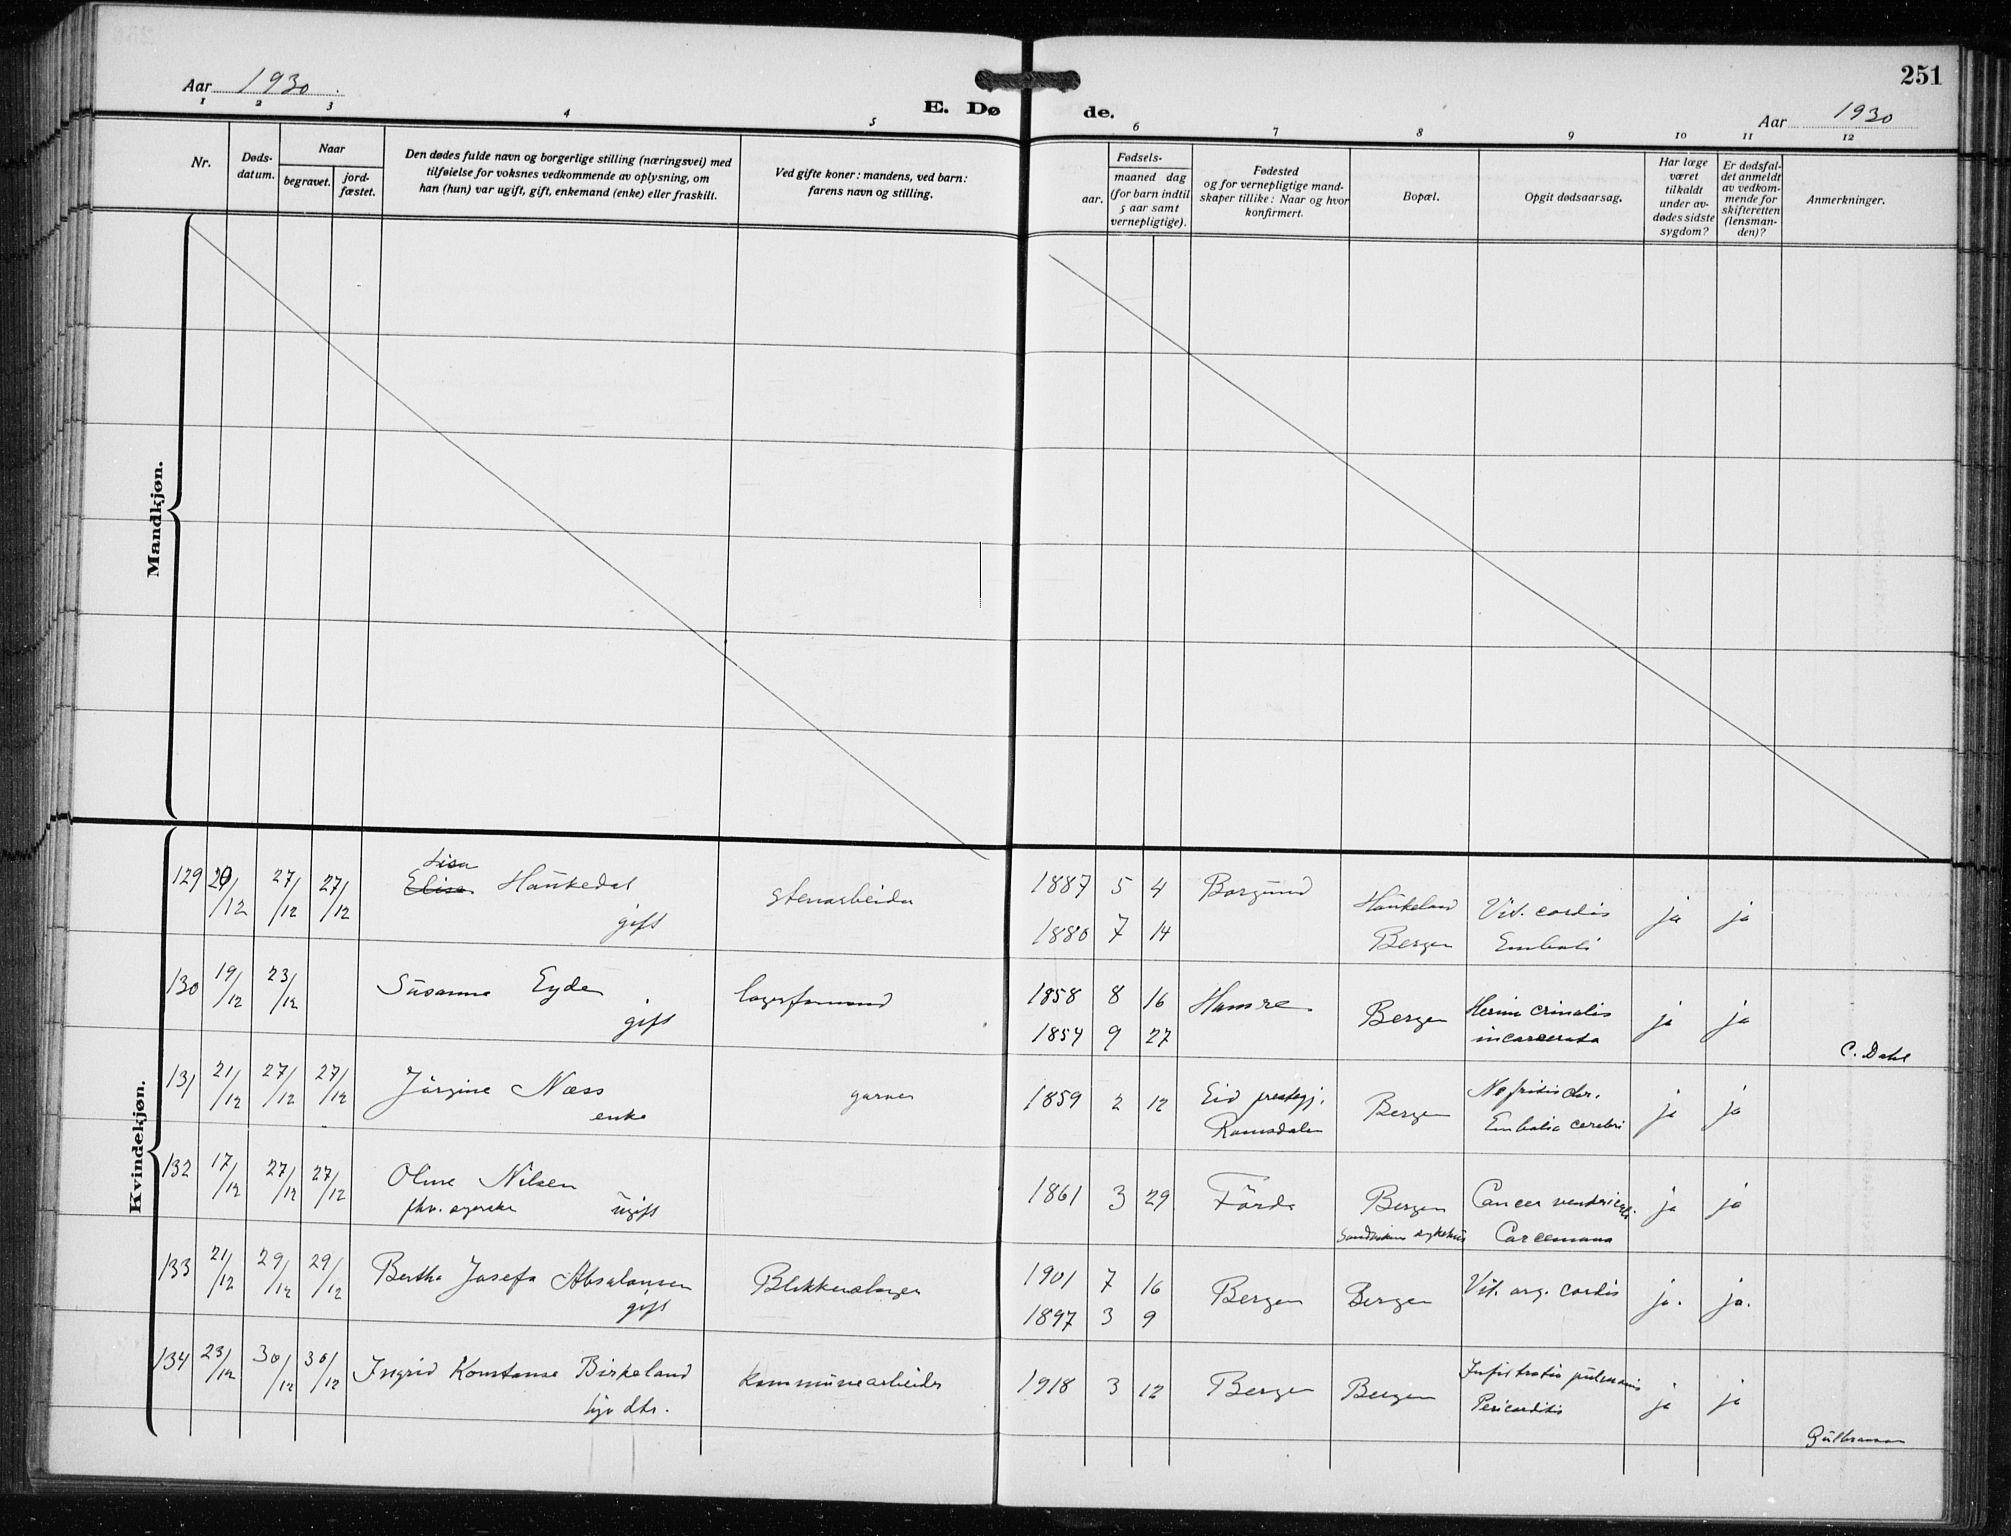 251
Aar 1930.
E. Dø de.
Aar 1930
1 2 3 4 5 6 7 8 9 10 11 12
Nr.
Døds-
datum.
Naar
begravet.
jord-
fæstet.
Den dødes fulde navn og borgerlige stilling (næringsvei) med
tilføielse for voksnes vedkommende av oplysning, om
han (hun) var ugift, gift, enkemand (enke) eller fraskilt.
Ved gifte koner: mandens, ved barn:
farens navn og stilling.
Fødsels-
aar.
maaned dag
(for barn indtil
5 aar samt
vernepligtige).
Fødested
og for vernepligtige mand-
skaper tillike: Naar og hvor
konfirmert.
Bopæl.
Opgit dødsaarsag.
Har læge
været
tilkaldt
under av-
dødes sidste
sygdom?
Er dødsfal-
det anmeldt
av vedkom-
mende for
skifteretten
(lensman-
den)?
Anmerkninger.
Mandkjøn.
Kvindekjøn.
Lisa
129 20/12 27/12 27/12 Elisa Haukedal stenarbeider 1887 5 4 Borgund Haukeland Vit. cordis ja ja
gift 1880 7 14 Bergen Emboli
130 19/12 23/12 Susanna Eyde lagerformand 1858 8 16 Hamre Bergen Hernia crinalis ja ja
gift 1854 9 27 incarcerata
C. Dahl
131 21/12 27/12 27/12 Jørgine Næss garver 1859 2 12 Eid prestegj. Bergen Nefritis chr. ja ja
enke Romsdalen Embolia cerebri
132 17/12 27/12 27/12 Oline Nilsen 1861 3 29 Förde Bergen Cancer ventriculi. ja ja
fhv. syerske ugift Sandvikens sykehus Carcenoma
133 21/12 29/12 29/12 Bertha Josefa Absalonsen Blikkenslager 1901 7 16 Bergen Bergen Vit. org. cordis ja. ja.
gift 1897 3 9
134 23/12 30/12 30/12 Ingrid Konstanse Birkeland kommunearbeider 1918 3 12 Bergen Bergen Infiltratio pulmonis ja ja
hjv dtr. Pericarditis
Gulbranson